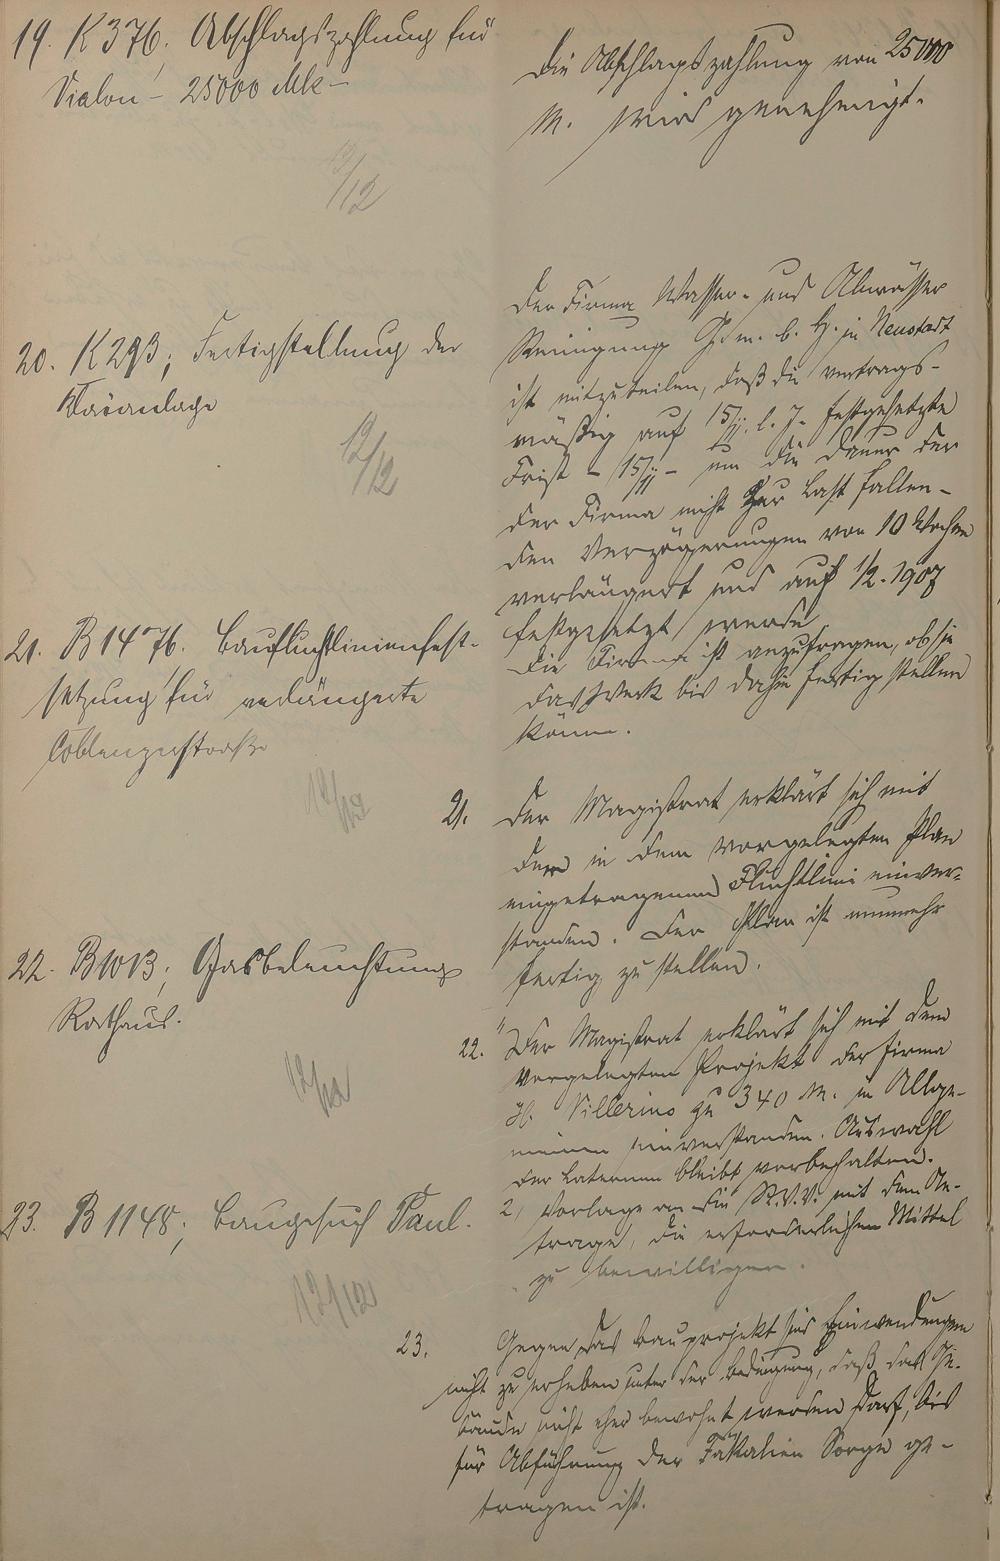 19. K 376. Abschlagszahlung für
Vialon - 25000 Mk -
Die Abschlagszahlung von 25000
M. wird genehmigt.
12/12
20. K 293; Fertigstellung der
Kläranlage
12/12
Der Firma Wasser- und Abwässer
Reinigung G. m. b. H. in Neustadt
ist mitzuteilen, daß die vertrags-
mäßig auf 15/11. l. J. festgesetzte
Frist - 15/11 - um die Dauer der
der Firma nicht zur Last fallen-
den Verzögerungen von 10 Wochen
verlängert und auf 1/2. 1907
festgesetzt werde
Die Firma ist anzufragen, ob sie
das Werk bis dahin fertig stellen
könne.
21. B 1476. Baufluchtlinienfest-
setzung für verlängerte
Coblenzerstraße
12/12
21. Der Magistrat erklärt sich mit
der in dem vorgelegten Plan
eingetragenen Fluchtlinie einver-
standen. Der Plan ist nunmehr
fertig zu stellen.
22. B 1013; Gasbeleuchtung
Rathaus.
12/12
22. Der Magistrat erklärt sich mit dem
vorgelegten Projekt der Firma
H. Villerino zu 340 M. im Allge-
meinen einverstanden. Auswahl
der Laternen bleibt vorbehalten.
2, Vorlage an die St.V.V. mit dem An-
trage, die erforderlichen Mittel
zu bewilligen.
23. B 1148; Baugesuch Paul.
12/12
23. Gegen das Bauprojekt sind Einwendungen
nicht zu erheben unter der Bedingung, daß das Ge-
bäude nicht eher bewohnt werden darf, bis
für Abführung der Fäkalien Sorge ge-
tragen ist.